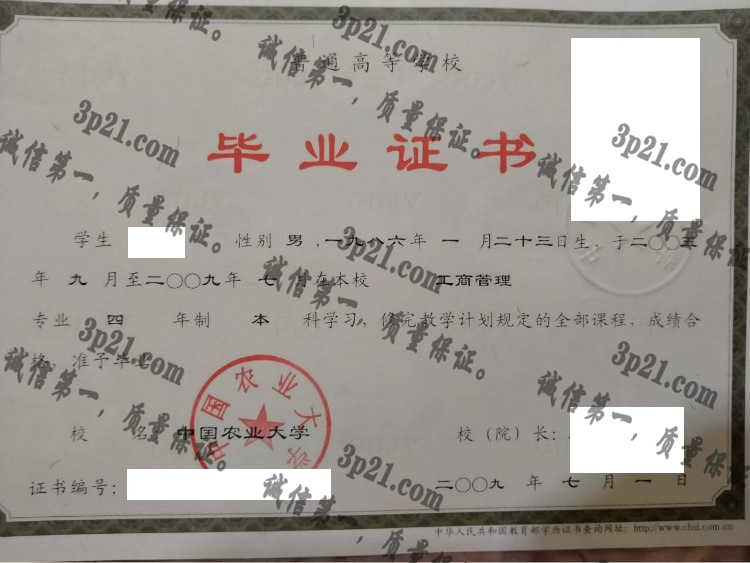 普通高等学校
毕业证书
学生 性别 男 ,一九八六年 一 月二十三日生, 于二〇〇五
年 九 月至二〇〇九年 七 月在本校 工商管理
专业 四 年制 本 科学习, 修完教学计划规定的全部课程, 成绩合
格, 准予毕业
中国农业大学
校 名: 中国农业大学 校（院）长:
证书编号: 二〇〇九 年 七 月 一 日
中华人民共和国教育部学历证书查询网址: http://www.chsi.com.cn
3p21.com
诚信第一, 质量保证。
3p21.com
诚信第一, 质量保证。
3p21.com
诚信第一, 质量保证。
3p21.com
诚信第一, 质量保证。
3p21.com
诚信第一, 质量保证。
3p21.com
诚信第一, 质量保证。
3p21.com
诚信第一, 质量保证。
3p21.com
诚信第一, 质量保证。